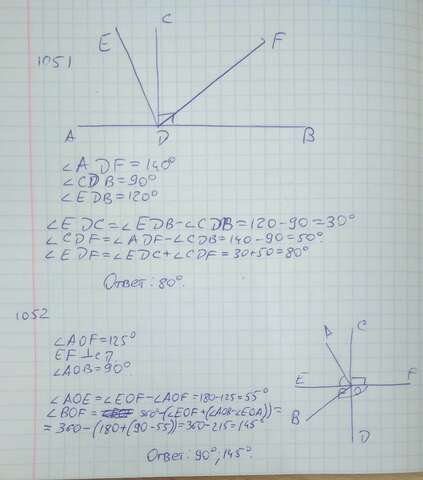 1051
C
E
F
A
D
B
∠ADF = 140°
∠CDB = 90°
∠EDB = 120°
∠EDC = ∠EDB - ∠CDB = 120 - 90 = 30°
∠CDF = ∠ADF - ∠CDB = 140 - 90 = 50°
∠EDF = ∠EDC + ∠CDF = 30 + 50 = 80°
Ответ: 80°.
1052
∠AOF = 125°
EF ⊥ СД
∠AOB = 90°
∠AOE = ∠EOF - ∠AOF = 180 - 125 = 55°
∠BOF = 360° - (∠EOF + (∠AOB - ∠EOA)) =
= 360 - (180 + (90 - 55)) = 360 - 215 = 145°
Ответ: 90°; 145°.
A
C
E
O
F
B
D